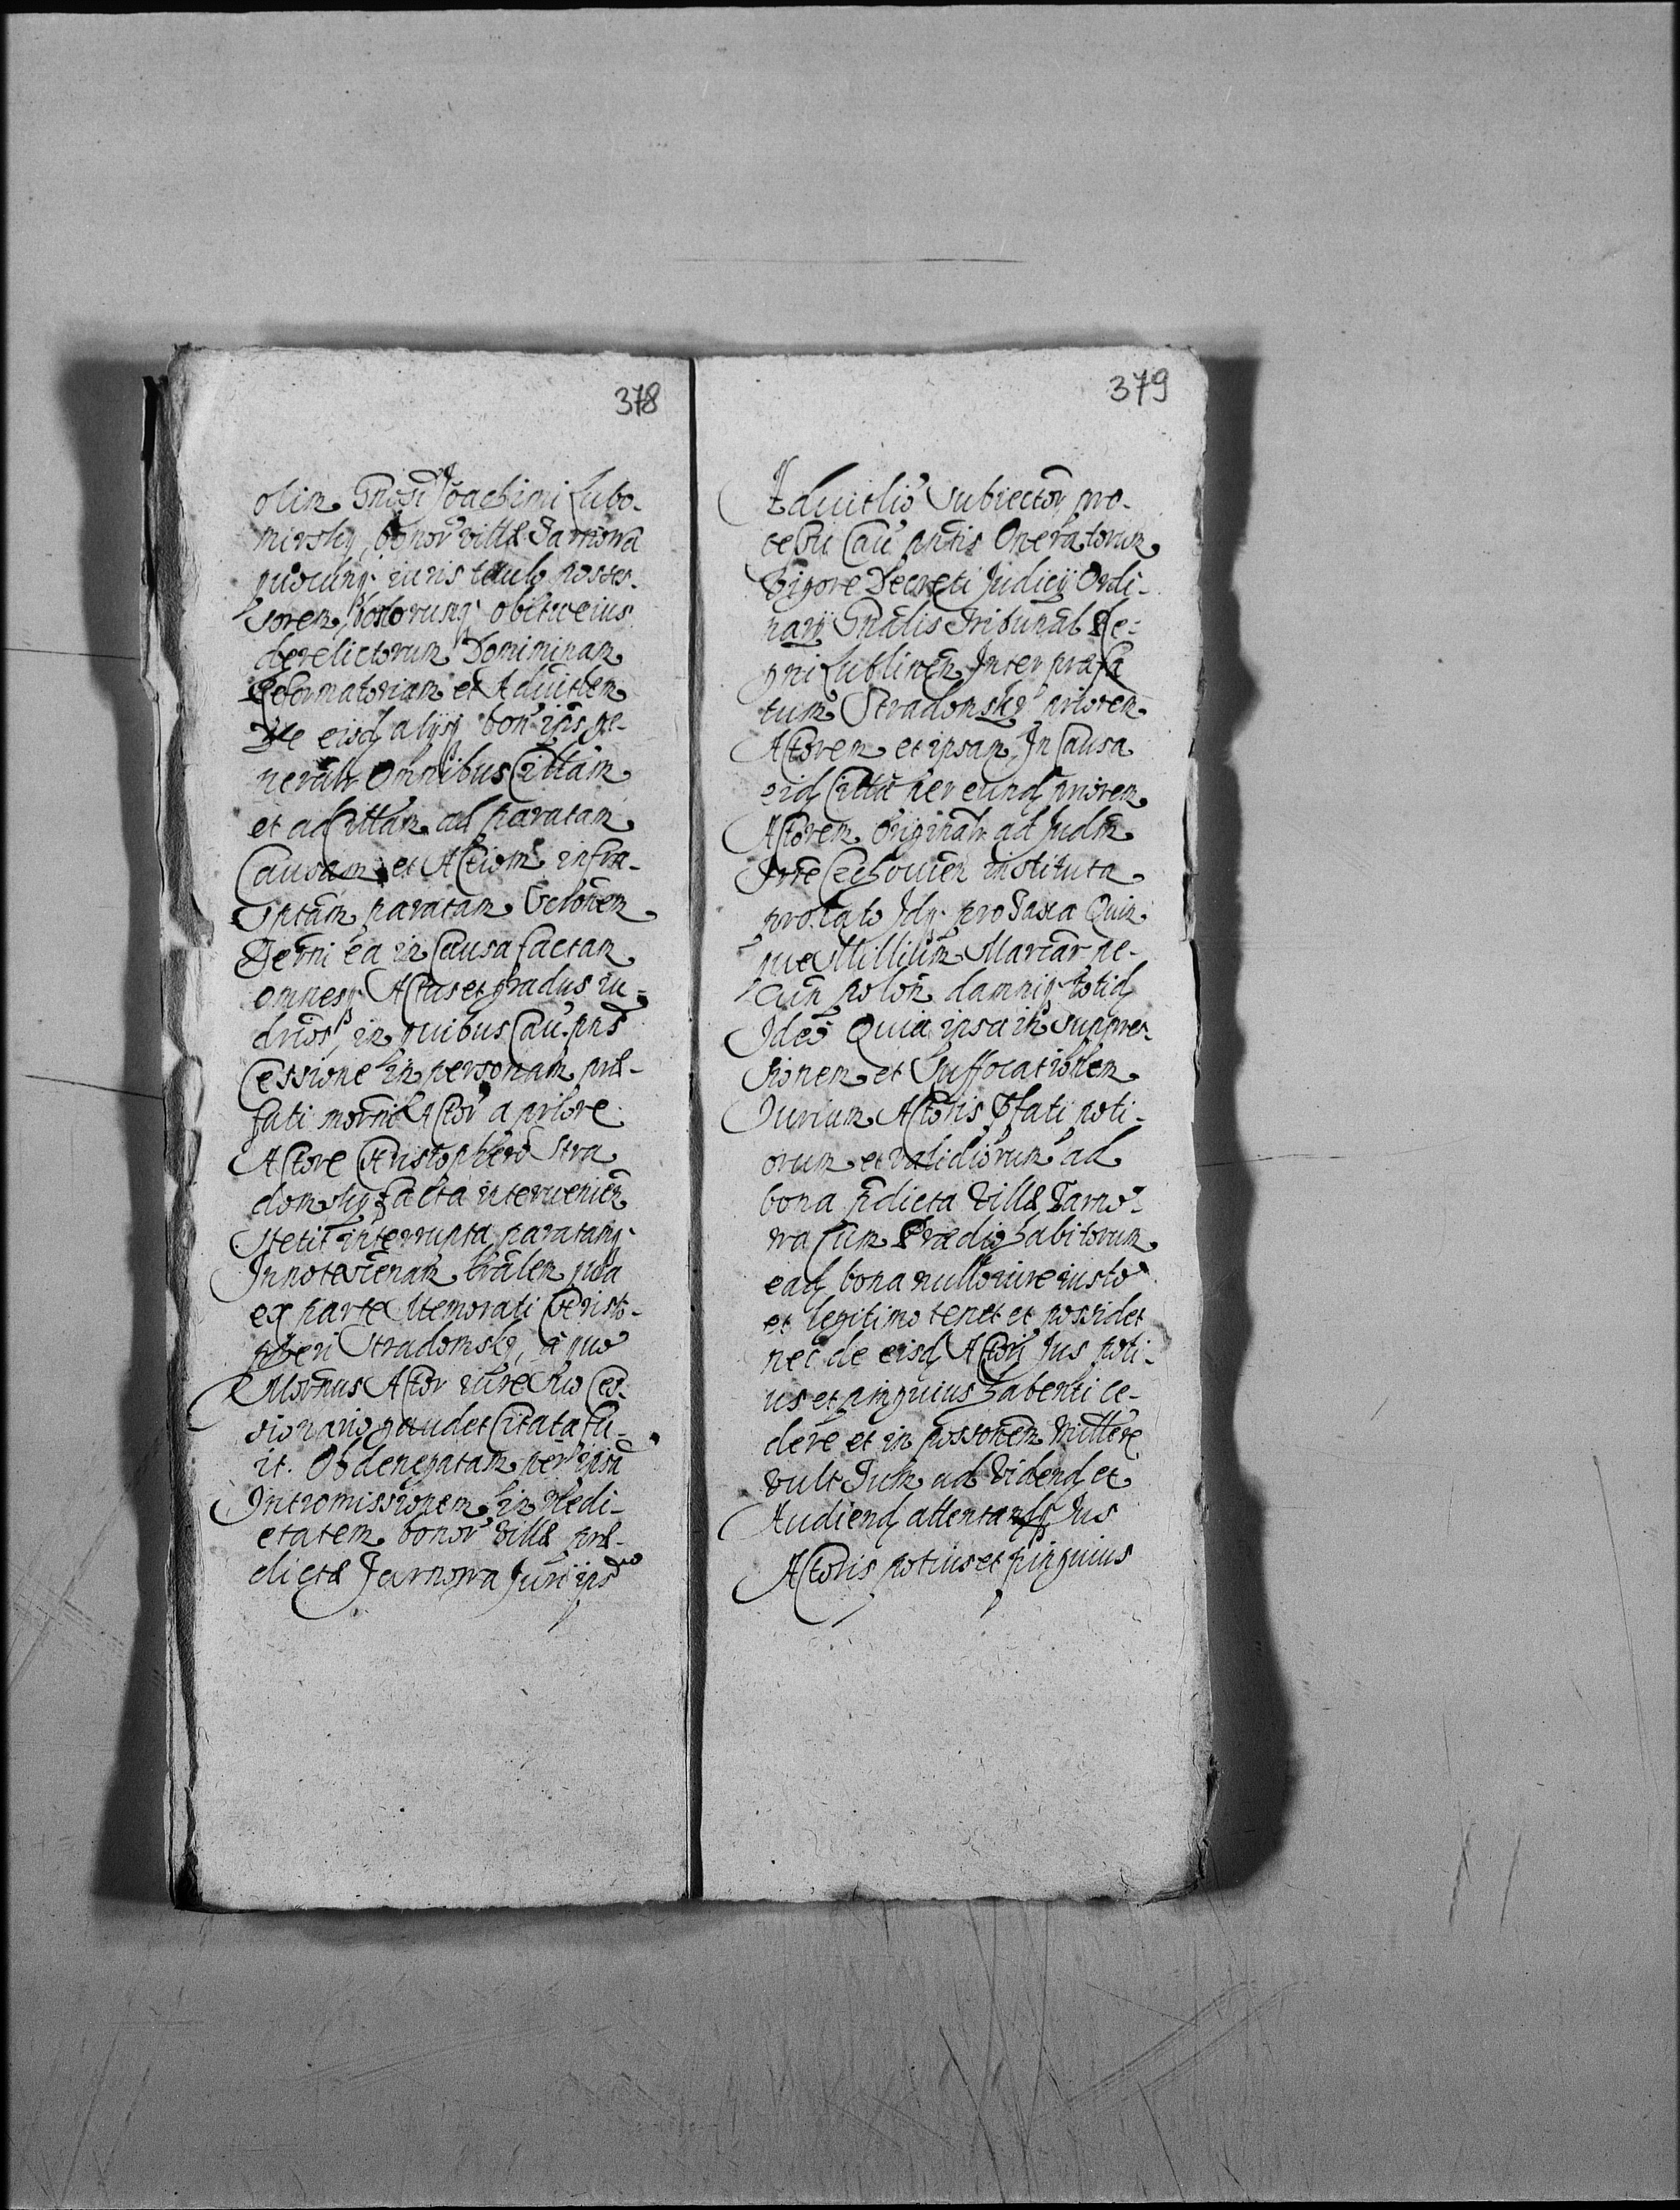 378
olim Gnosi Joachimi Lubo-
mirsky, bonor villæ Jarnowa
quocunq iuris titulo posses-
sorem, bonorumq obitu eius
derelictorum Dominam
Reformatoriam et Aduitlem
De eisd alijsq bon ips ge-
neralr omnibus Cittam
et ad cittam ad paratam
Causam et Actiom infra-
sptam paratam
Termi ea in Causa factam
omnesq Actus et gradus iu-
drios, in quibus Cau pns
Cessione in personam præ-
fati morni Actor a priore
Actore Christophero Stra
domsky facta interuenien
stetit interrupta paratamq
Innotescenam qua
ex parte Memorati Christo-
pheri Stradomsky, à quo
Mornus Actor iure suo Ces-
sionario gaudet Citata fu-
it. Ob denegatam per ipsa
Intromissionem in Medi-
etatem bonor villæ præ-
dictæ Jarnowa Juri ips
379
Aduitlio subiector pro-
cessu Cau pntis Operatorum
Vigore Decreti Judicij Ordi-
narij Gnalis Tribunal Re-
gni Lublinen Inter præfa
tum Stradomsky priorem
Actorem et ipsam, In Causa
eid Citta per eund priorem
Actorem Originalr ad Judm
Trre Czchouien instituta
prolato Idq pro Taxa Quin
que Millium Marcar pe-
cun polon damnisq totid
Ideo Quia ipsa in suppres-
sionem et Suffocationem
Jurium Actoris Pfati poti-
orum et validiorum ad
bona pdicta Villæ Jarno-
wa cum Prædio habitorum
ead bona nullo iure iusto
et legitimo tenet et possidet
nec de eisd Actori Jus poti-
us et pinguius habenti ce-
dere et in possonem mittere
vult Tum ad Videnda et
Audiend attentand Jus
Actoris potius et pinguius